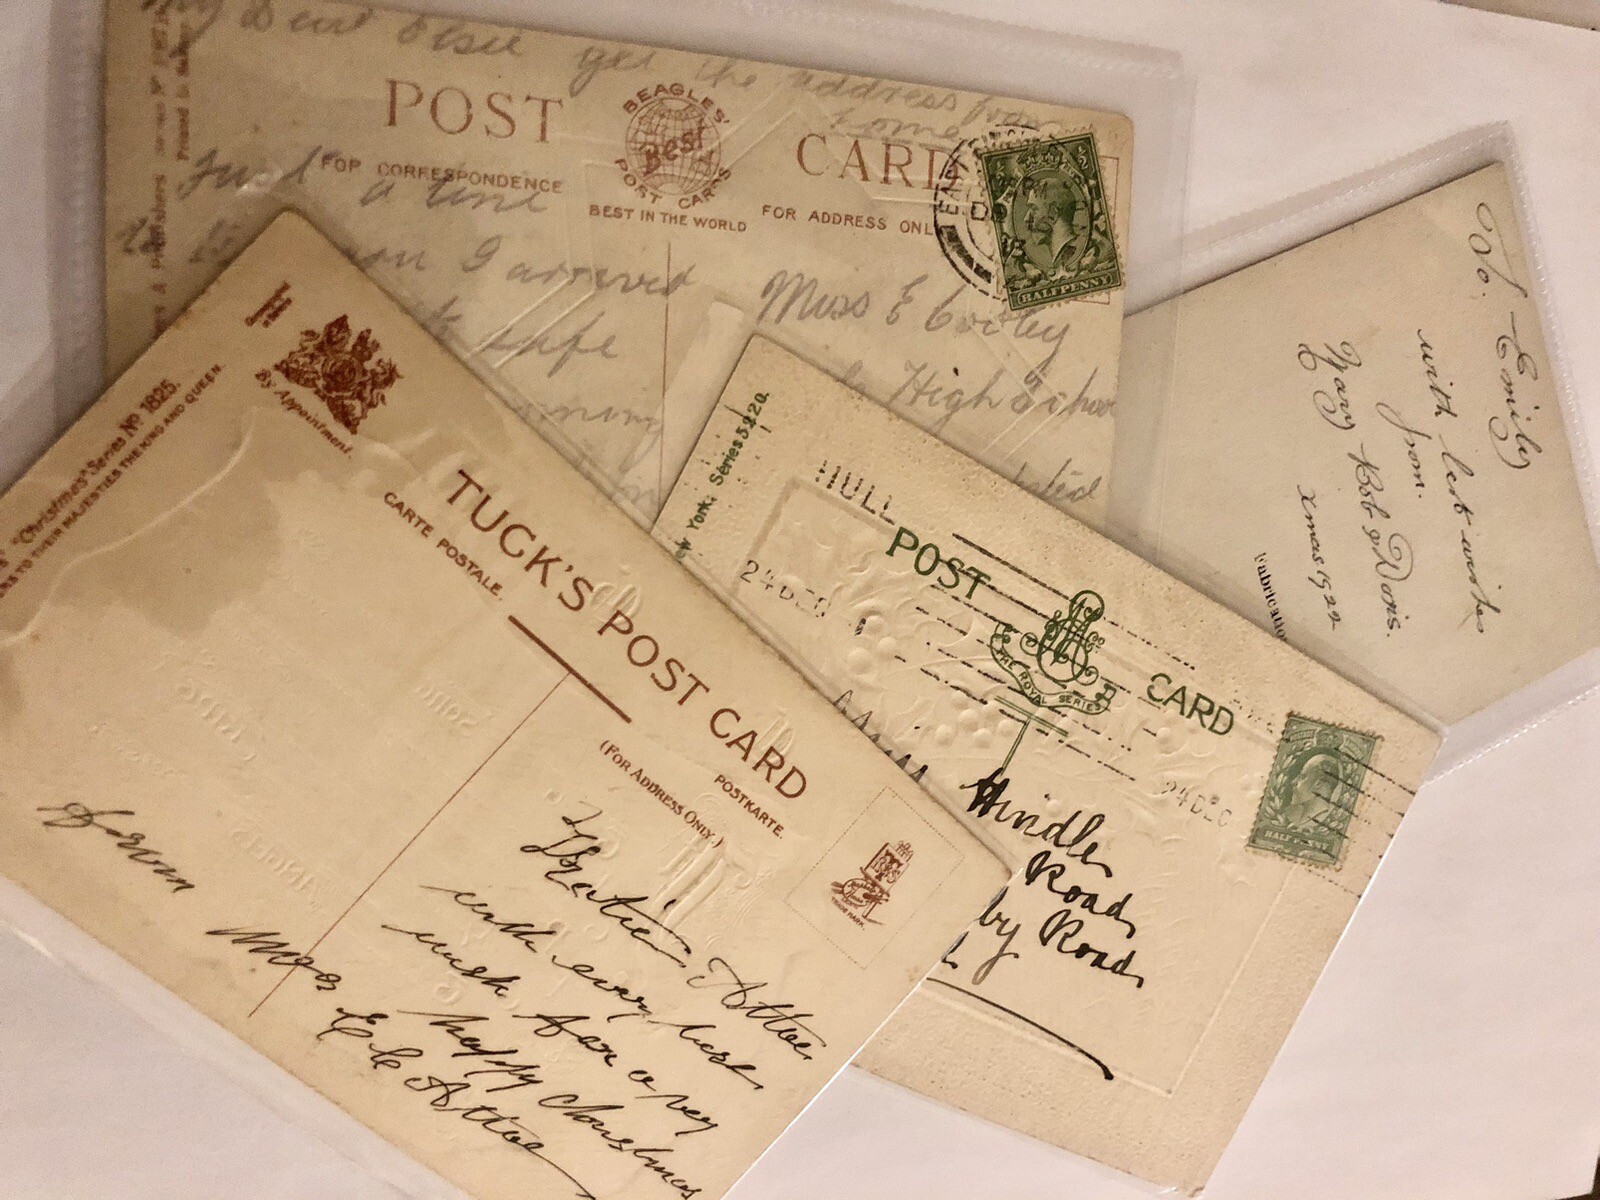 My Dear Elsie get the address from
home
POST
BEAGLES'
Best
POST CARDS
BEST IN THE WORLD
CARD
FOR CORRESPONDENCE
FOR ADDRESS ONL
Just a line
you I arrived
safe
Miss E
High School
HALFPENNY
To. Emily
with best wishes
from.
Mary Bob & Doris.
Xmas 1922
Fabricatio
w York. Series 5220.
HULL
24 DEC
POST
THE ROYAL SERIES
CARD
24 DEC
HALFPENNY
Miss
Hindle
Road
by Road
"Christmas" Series No 1825.
RS TO THEIR MAJESTIES THE KING AND QUEEN.
By Appointment.
TUCK'S POST CARD
CARTE POSTALE.
POSTKARTE.
(FOR ADDRESS ONLY.)
TRADE MARK.
Attoe
with every best
wish for a very
happy Christmas
From Mrs E C Attoe